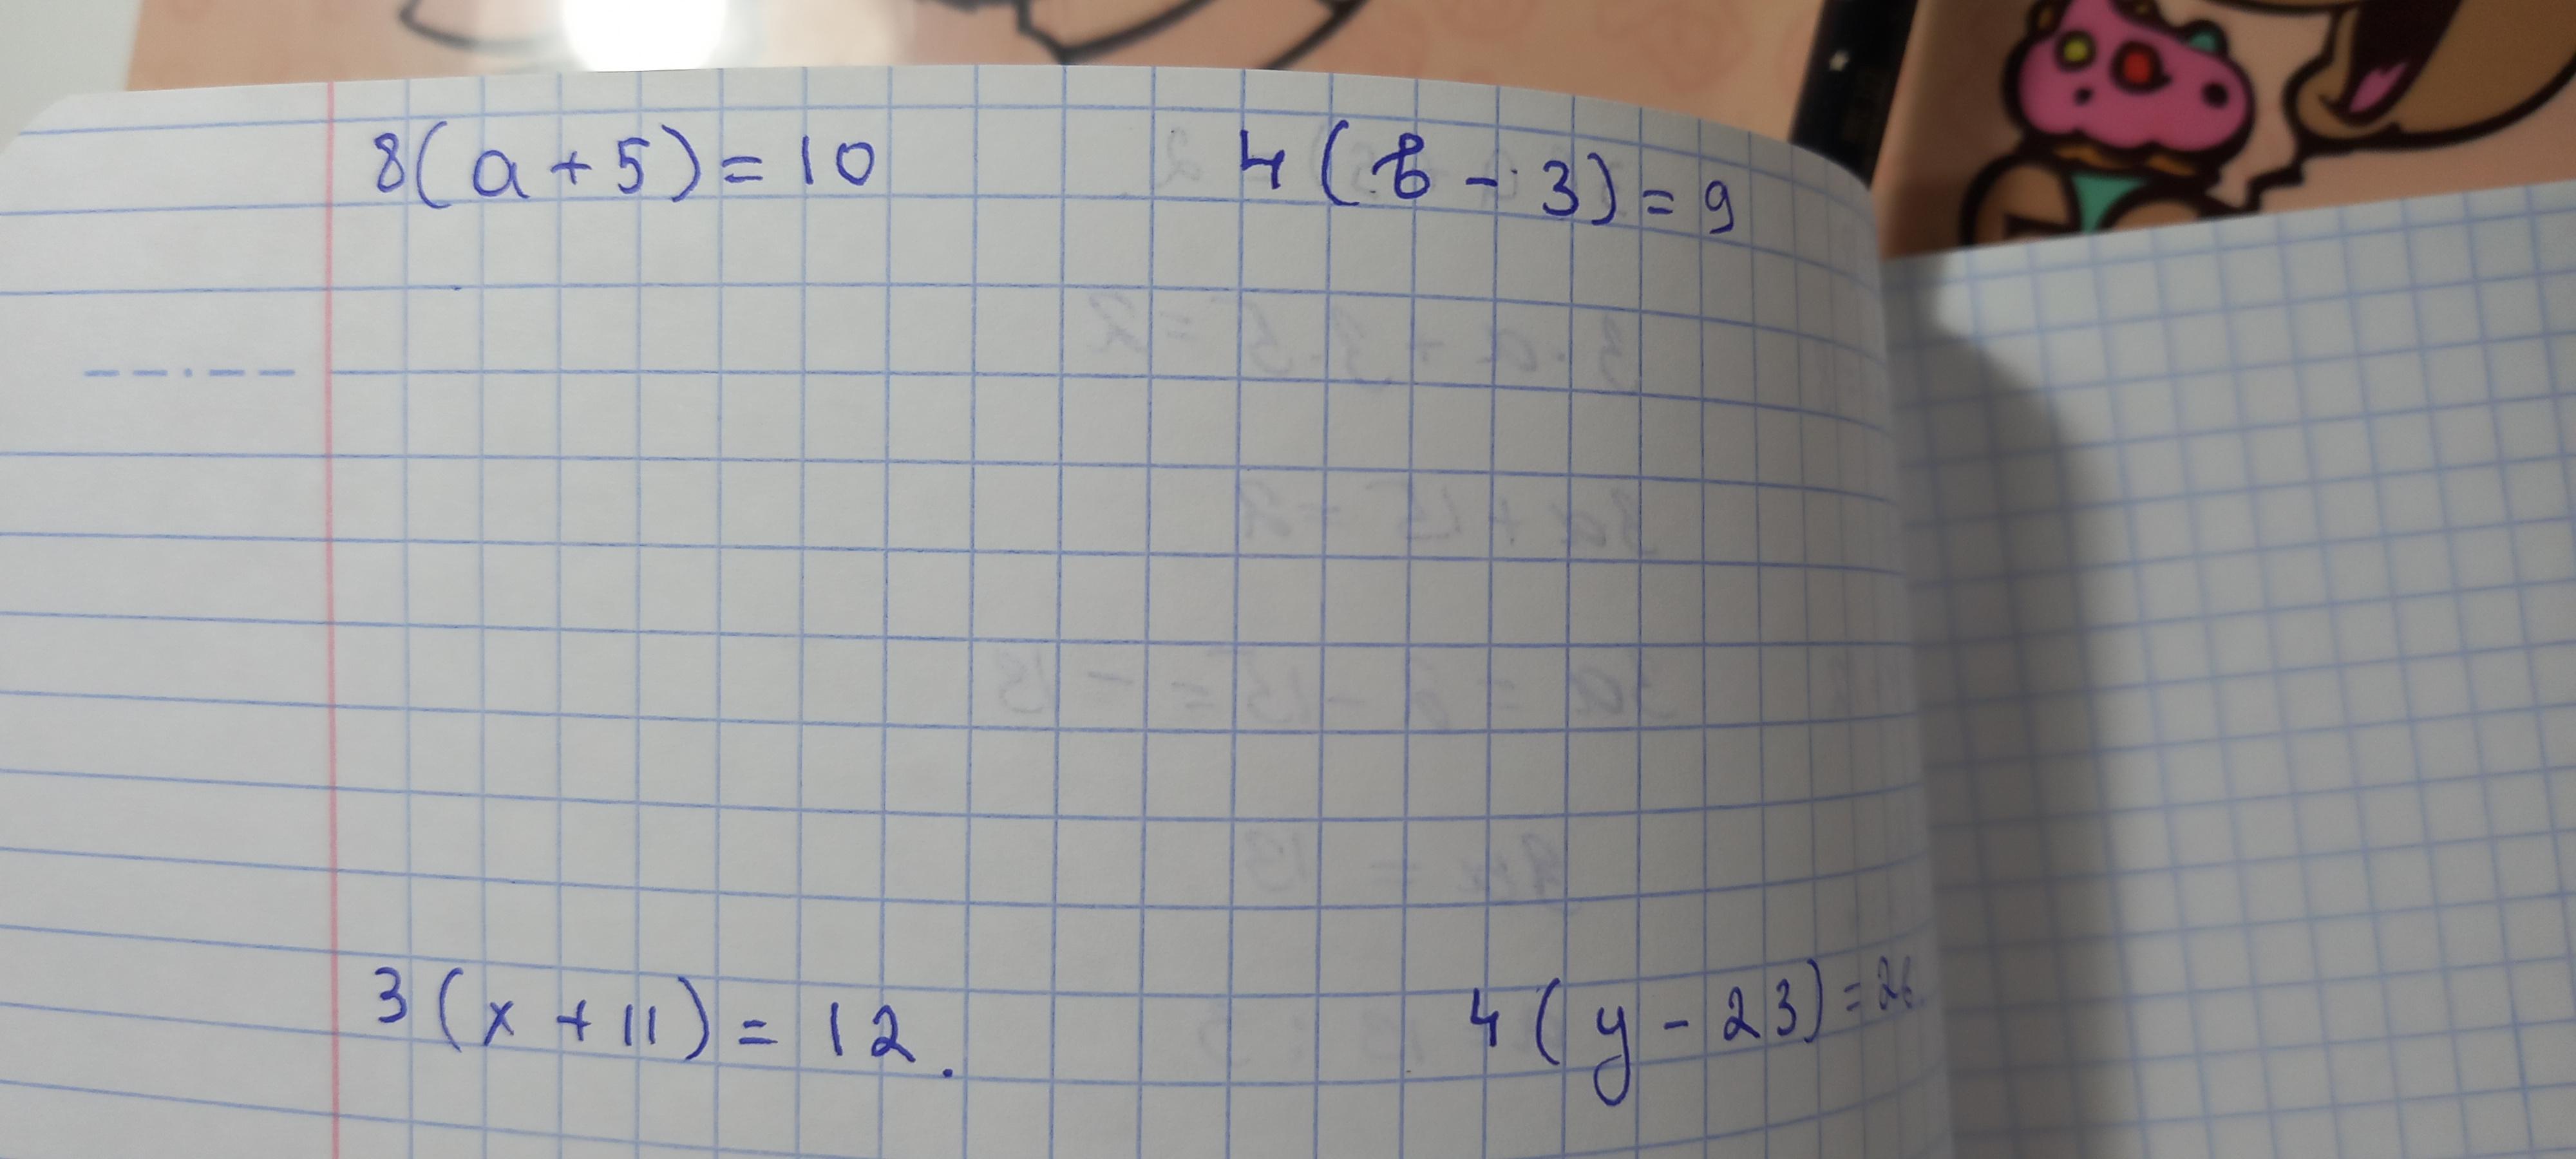 8(a+5)=10
4(b-3)=9
3(x+11)=12.
4(y-23)=26